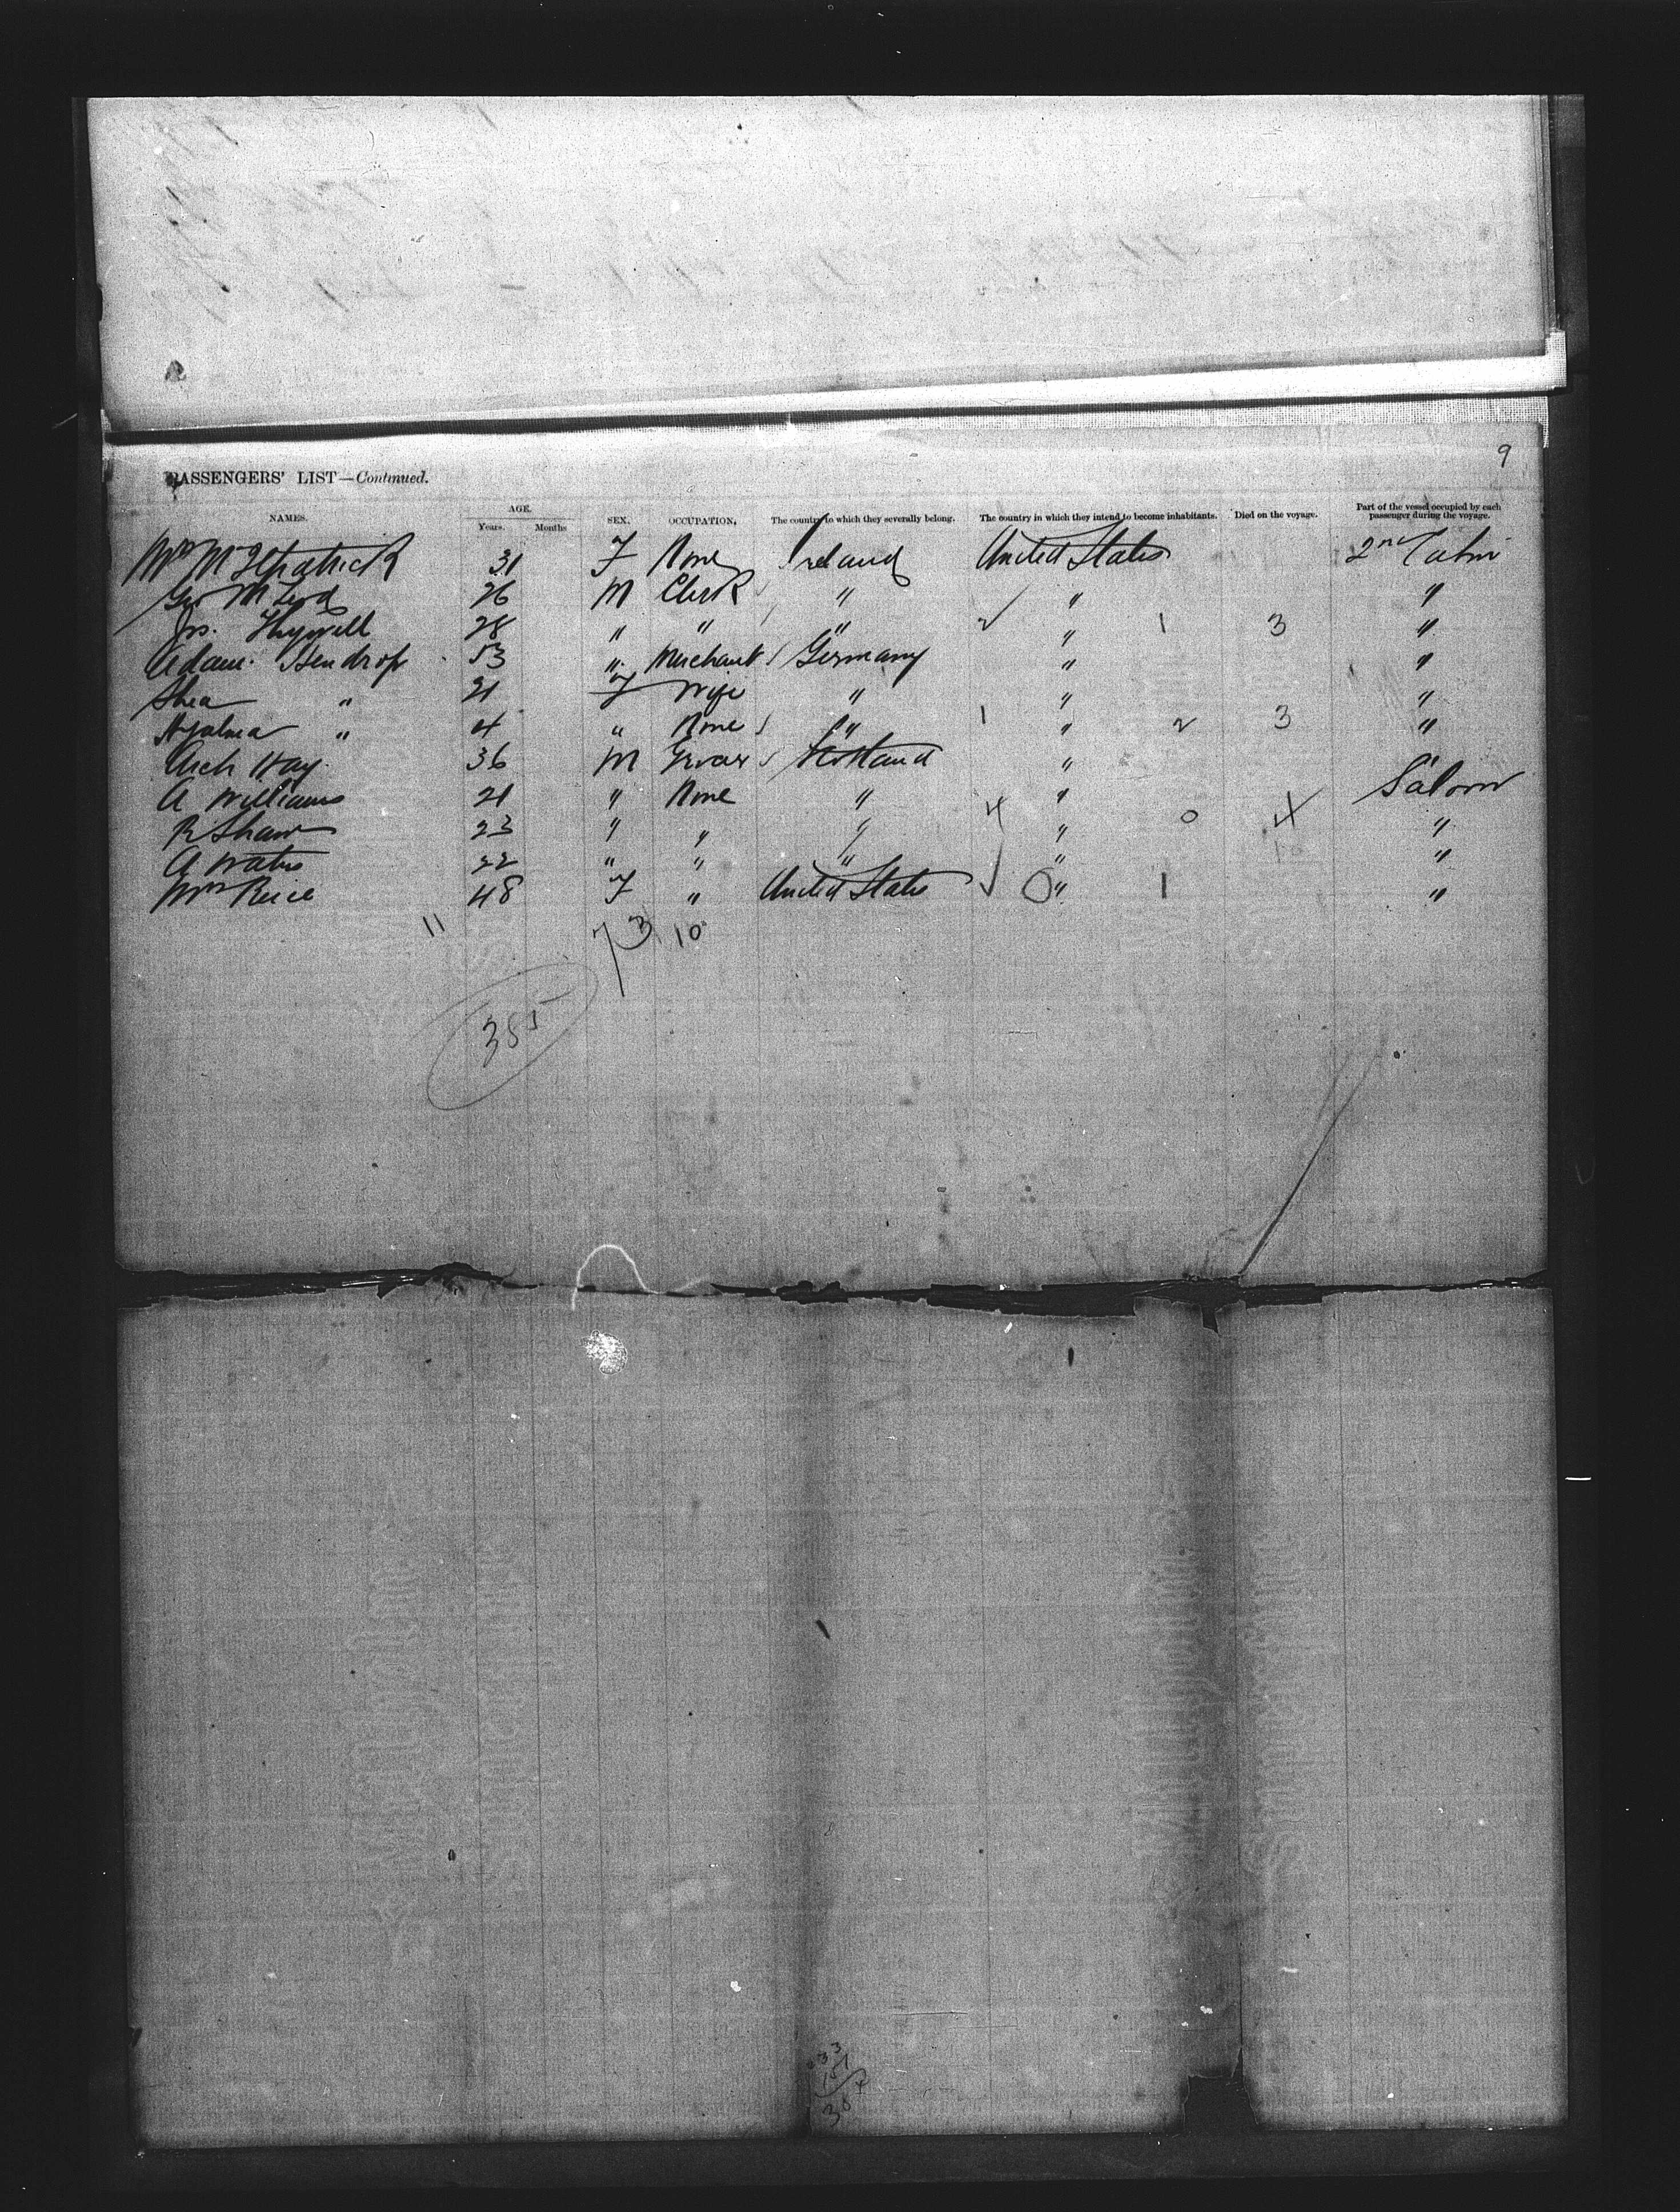 9
PASSENGERS' LIST—Continued.
NAMES. AGE. Years. Months SEX. OCCUPATION, The country to which they severally belong. The country in which they intend to become inhabitants. Died on the voyage. Part of the vessel occupied by each passenger during the voyage.
31 F None Ireland United States 2nd Cabin
Geo McLeod 26 M Clerk " " "
Jos. 28 " " " " 1 3 "
Adam Hendrop 53 " Merchant Germany " "
" 21 F Wife " " "
Hjalma " 4 " None " 1 " 2 3 "
Arch Hay 36 M Grocer Scotland "
A Williams 21 " None " " Saloon
R Shaw 23 " " " 4 " 0 4 "
A Waters 22 " " " " "
Mrs 48 F " United States 0 " 1 "
11 7 3 10
355
233
151
384